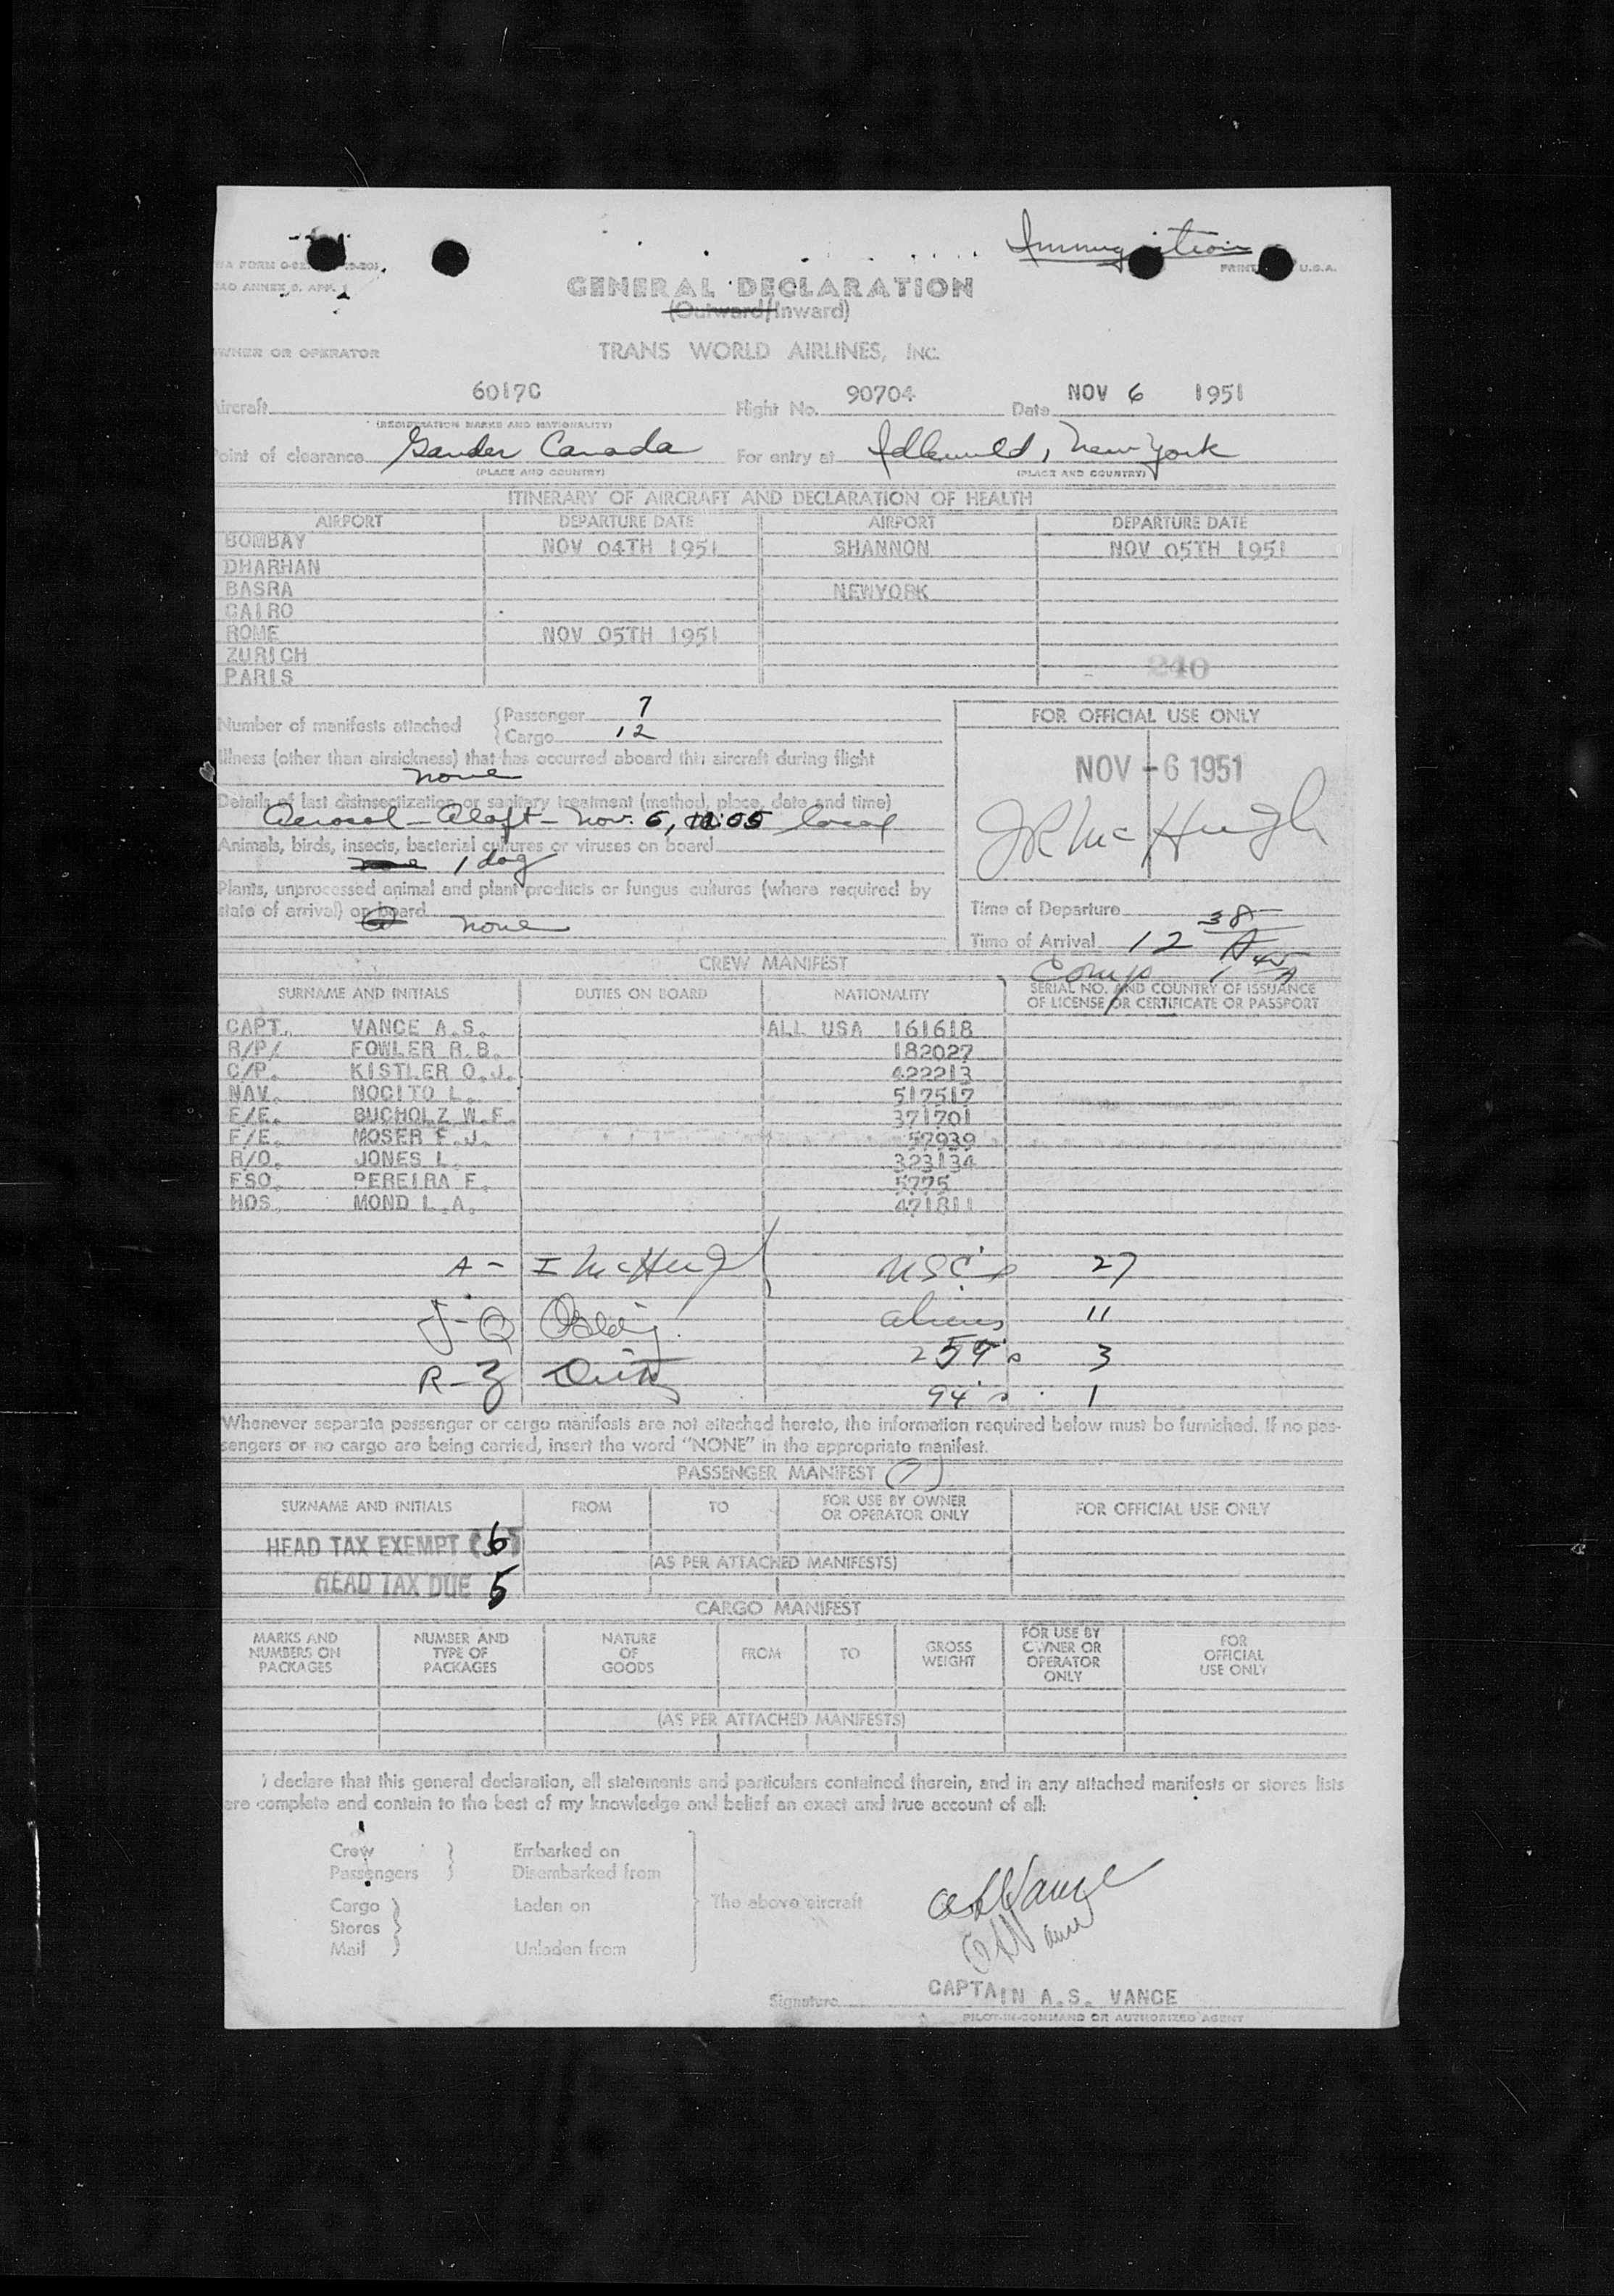 Immigration
PRINT U.S.A.
GENERAL DECLARATION
(Outward/Inward)
OWNER OR OPERATOR TRANS WORLD AIRLINES, INC.
Aircraft 6017C Flight No. 90704 Date NOV 6 1951
(REGISTRATION MARKS AND NATIONALITY)
Point of clearance Gander Canada For entry at Idlewild, New York
(PLACE AND COUNTRY) (PLACE AND COUNTRY)
ITINERARY OF AIRCRAFT AND DECLARATION OF HEALTH
AIRPORT DEPARTURE DATE AIRPORT DEPARTURE DATE
BOMBAY NOV 04TH 1951 SHANNON NOV 05TH 1951
DHARHAN
BASRA NEWYORK
CAIRO
ROME NOV 05TH 1951
ZURICH
PARIS 240
Number of manifests attached
Passenger 7
Cargo 12
Illness (other than airsickness) that has occurred aboard this aircraft during flight
none
Details of last disinsectization or sanitary treatment (method, place, date and time)
Aerosol - Aloft - Nov. 6, local
Animals, birds, insects, bacterial cultures or viruses on board
none 1 dog
Plants, unprocessed animal and plant products or fungus cultures (where required by
state of arrival) on board
none
FOR OFFICIAL USE ONLY
NOV -6 1951
JR McHugh
Time of Departure
Time of Arrival 12 38 A
Comp 1 45 A
CREW MANIFEST
SURNAME AND INITIALS DUTIES ON BOARD NATIONALITY SERIAL NO. AND COUNTRY OF ISSUANCE
OF LICENSE OR CERTIFICATE OR PASSPORT
CAPT. VANCE A.S. ALL USA 161618
R/P/ FOWLER R.B. 182027
C/P. KISTLER O.J. 422213
NAV. NOCITO L. 517517
F/E. BUCHOLZ W.F. 371701
F/E. MOSER F.J. 57939
R/O. JONES L. 323134
FSO. PEREIRA F. 5775
HOS. MOND L.A. 471811
A - I McHugh USC's 27
J - Q aliens 11
R - Z 259's 3
94's 1
Whenever separate passenger or cargo manifests are not attached hereto, the information required below must be furnished. If no pas-
sengers or no cargo are being carried, insert the word "NONE" in the appropriate manifest.
PASSENGER MANIFEST (7)
SURNAME AND INITIALS FROM TO FOR USE BY OWNER
OR OPERATOR ONLY FOR OFFICIAL USE ONLY
HEAD TAX EXEMPT 6
(AS PER ATTACHED MANIFESTS)
HEAD TAX DUE 5
CARGO MANIFEST
MARKS AND
NUMBERS ON
PACKAGES
NUMBER AND
TYPE OF
PACKAGES
NATURE
OF
GOODS
FROM
TO
GROSS
WEIGHT
FOR USE BY
OWNER OR
OPERATOR
ONLY
FOR
OFFICIAL
USE ONLY
(AS PER ATTACHED MANIFESTS)
I declare that this general declaration, all statements and particulars contained therein, and in any attached manifests or stores lists
are complete and contain to the best of my knowledge and belief an exact and true account of all:
Crew Embarked on
Passengers Disembarked from
Cargo Laden on The above aircraft
Stores
Mail Unladen from
A S Vance
A S Vance
Signature CAPTAIN A.S. VANCE
PILOT-IN-COMMAND OR AUTHORIZED AGENT